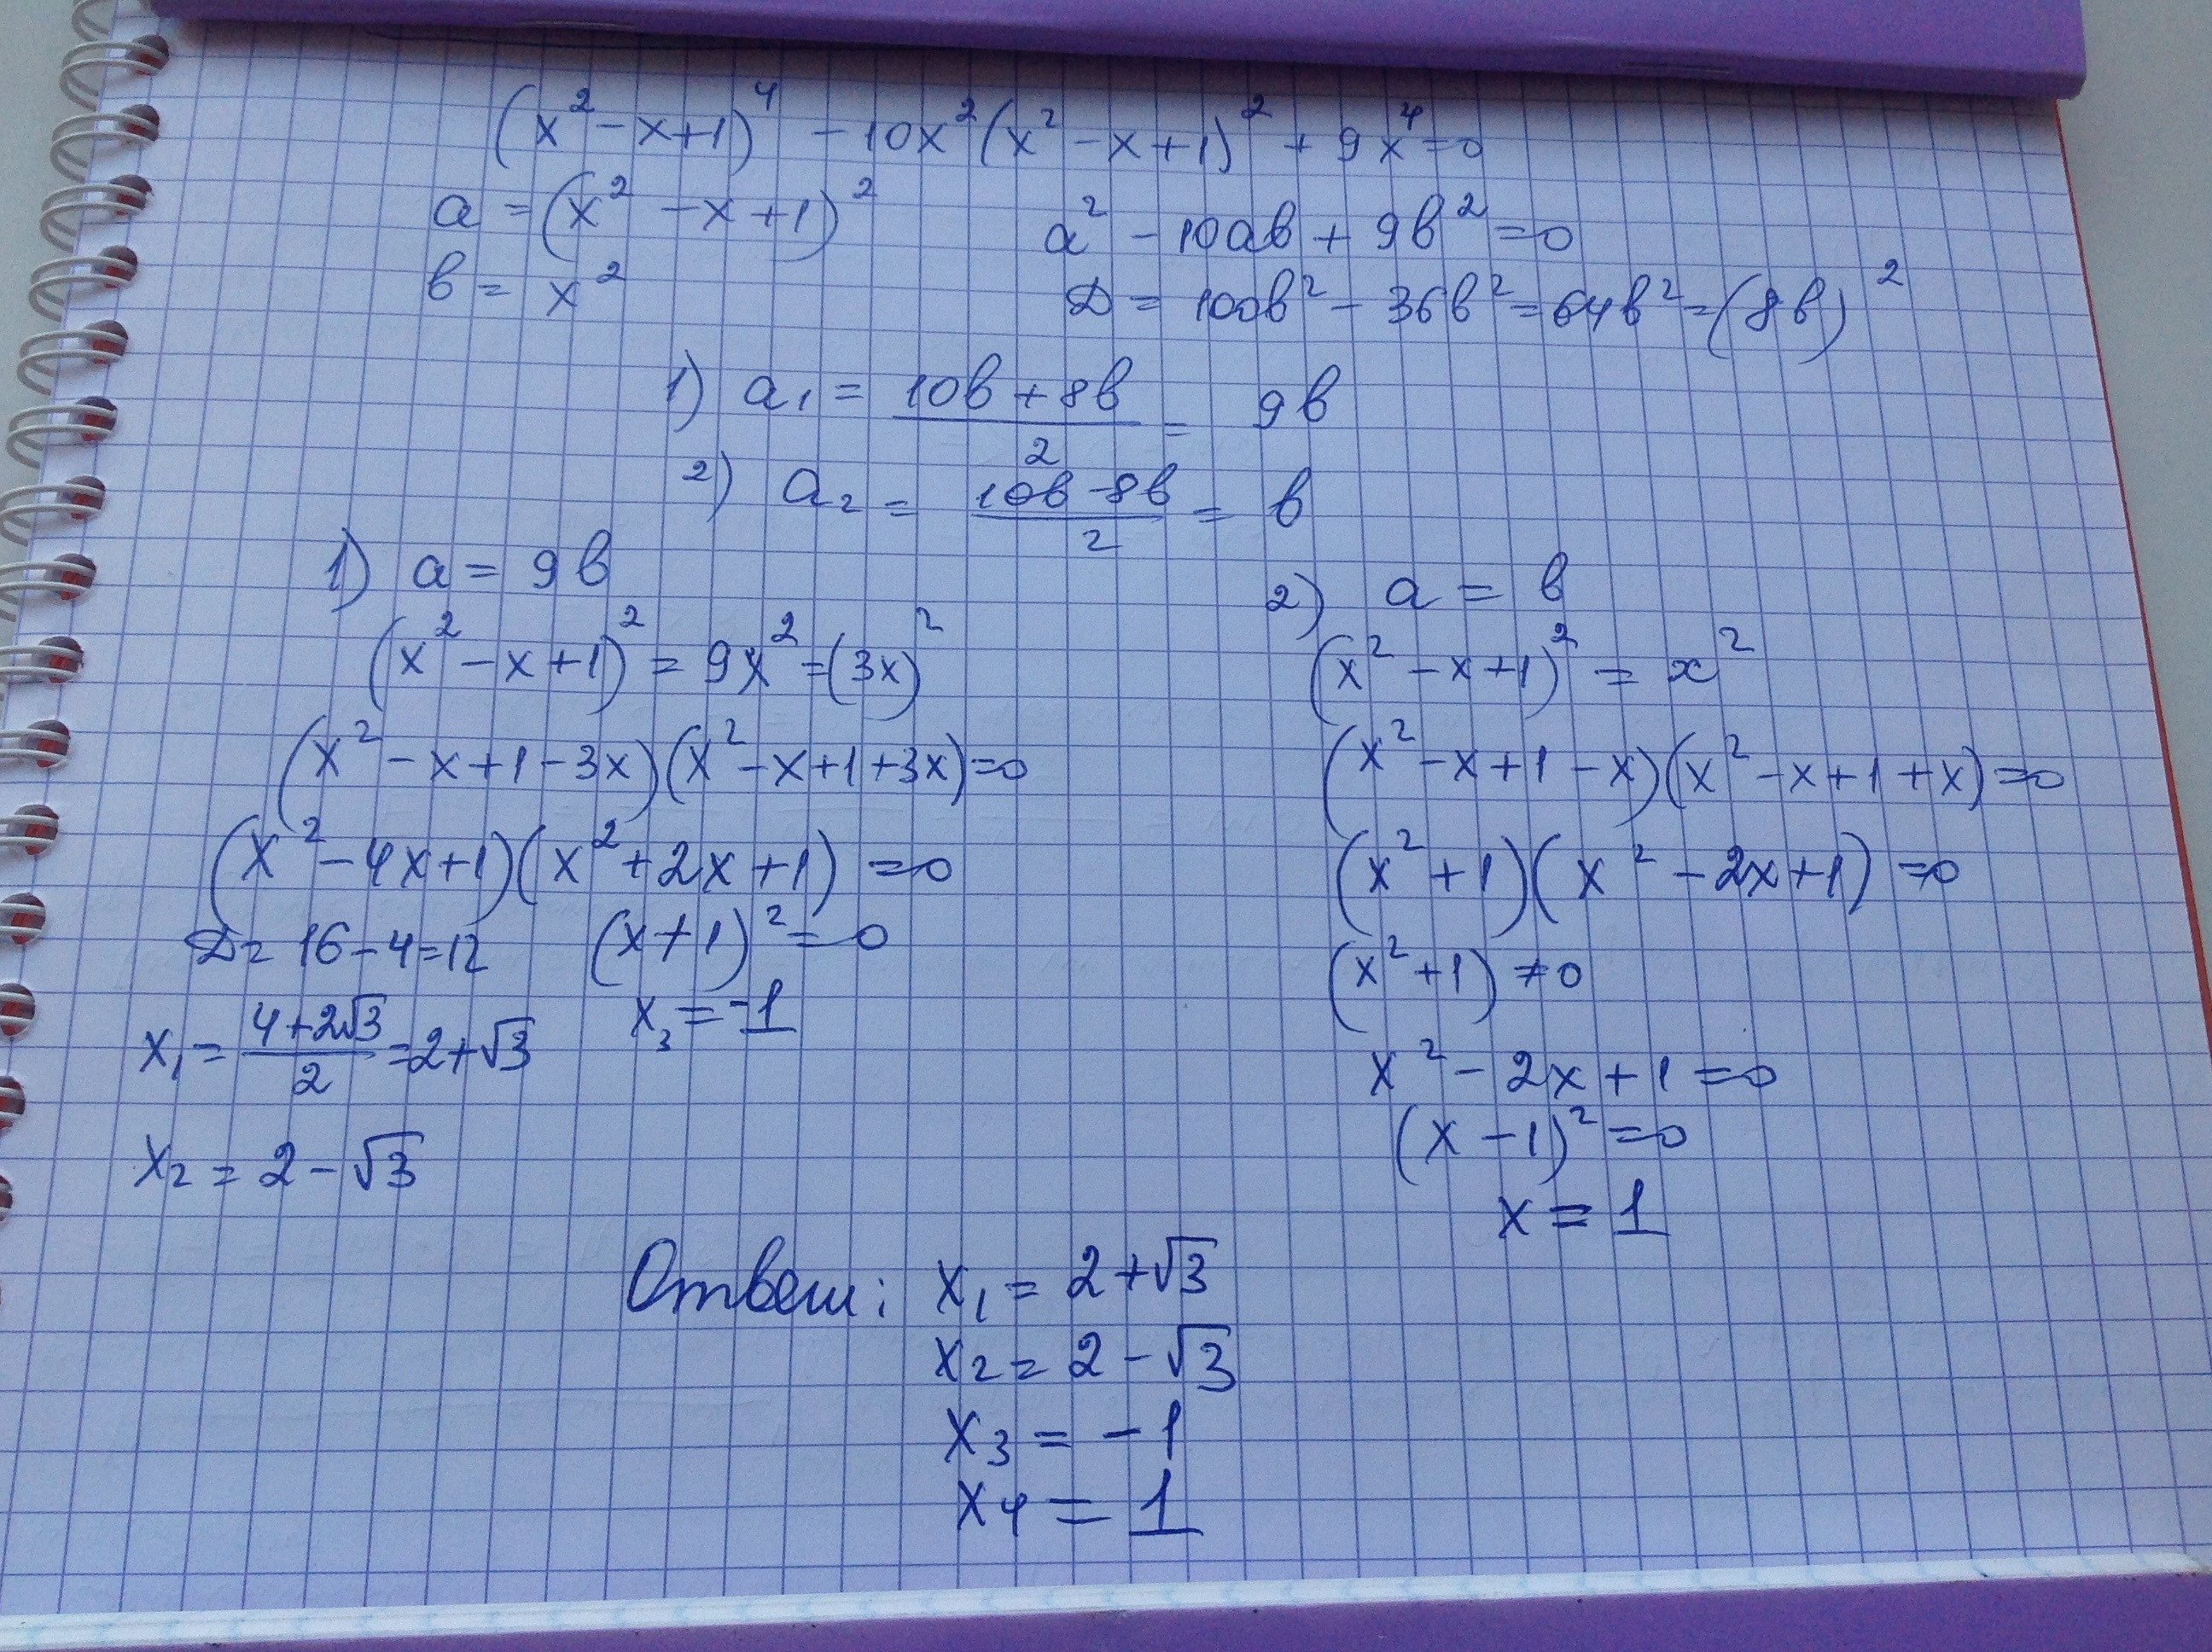 (x² - x + 1)⁴ - 10x²(x² - x + 1)² + 9x⁴ = 0
a = (x² - x + 1)²
в = x²
a² - 10aв + 9в² = 0
Д = 100в² - 36в² = 64в² = (8в)²
1) a₁ = (10в + 8в)/2 = 9в
2) a₂ = (10в - 8в)/2 = в
1) a = 9в
(x² - x + 1)² = 9x² = (3x)²
(x² - x + 1 - 3x)(x² - x + 1 + 3x) = 0
(x² - 4x + 1)(x² + 2x + 1) = 0
Д = 16 - 4 = 12
x₁ = (4 + 2√3)/2 = 2 + √3
x₂ = 2 - √3
(x + 1)² = 0
x₃ = -1
2) a = в
(x² - x + 1)² = x²
(x² - x + 1 - x)(x² - x + 1 + x) = 0
(x² + 1)(x² - 2x + 1) = 0
(x² + 1) ≠ 0
x² - 2x + 1 = 0
(x - 1)² = 0
x = 1
Ответ: x₁ = 2 + √3
x₂ = 2 - √3
x₃ = -1
x₄ = 1